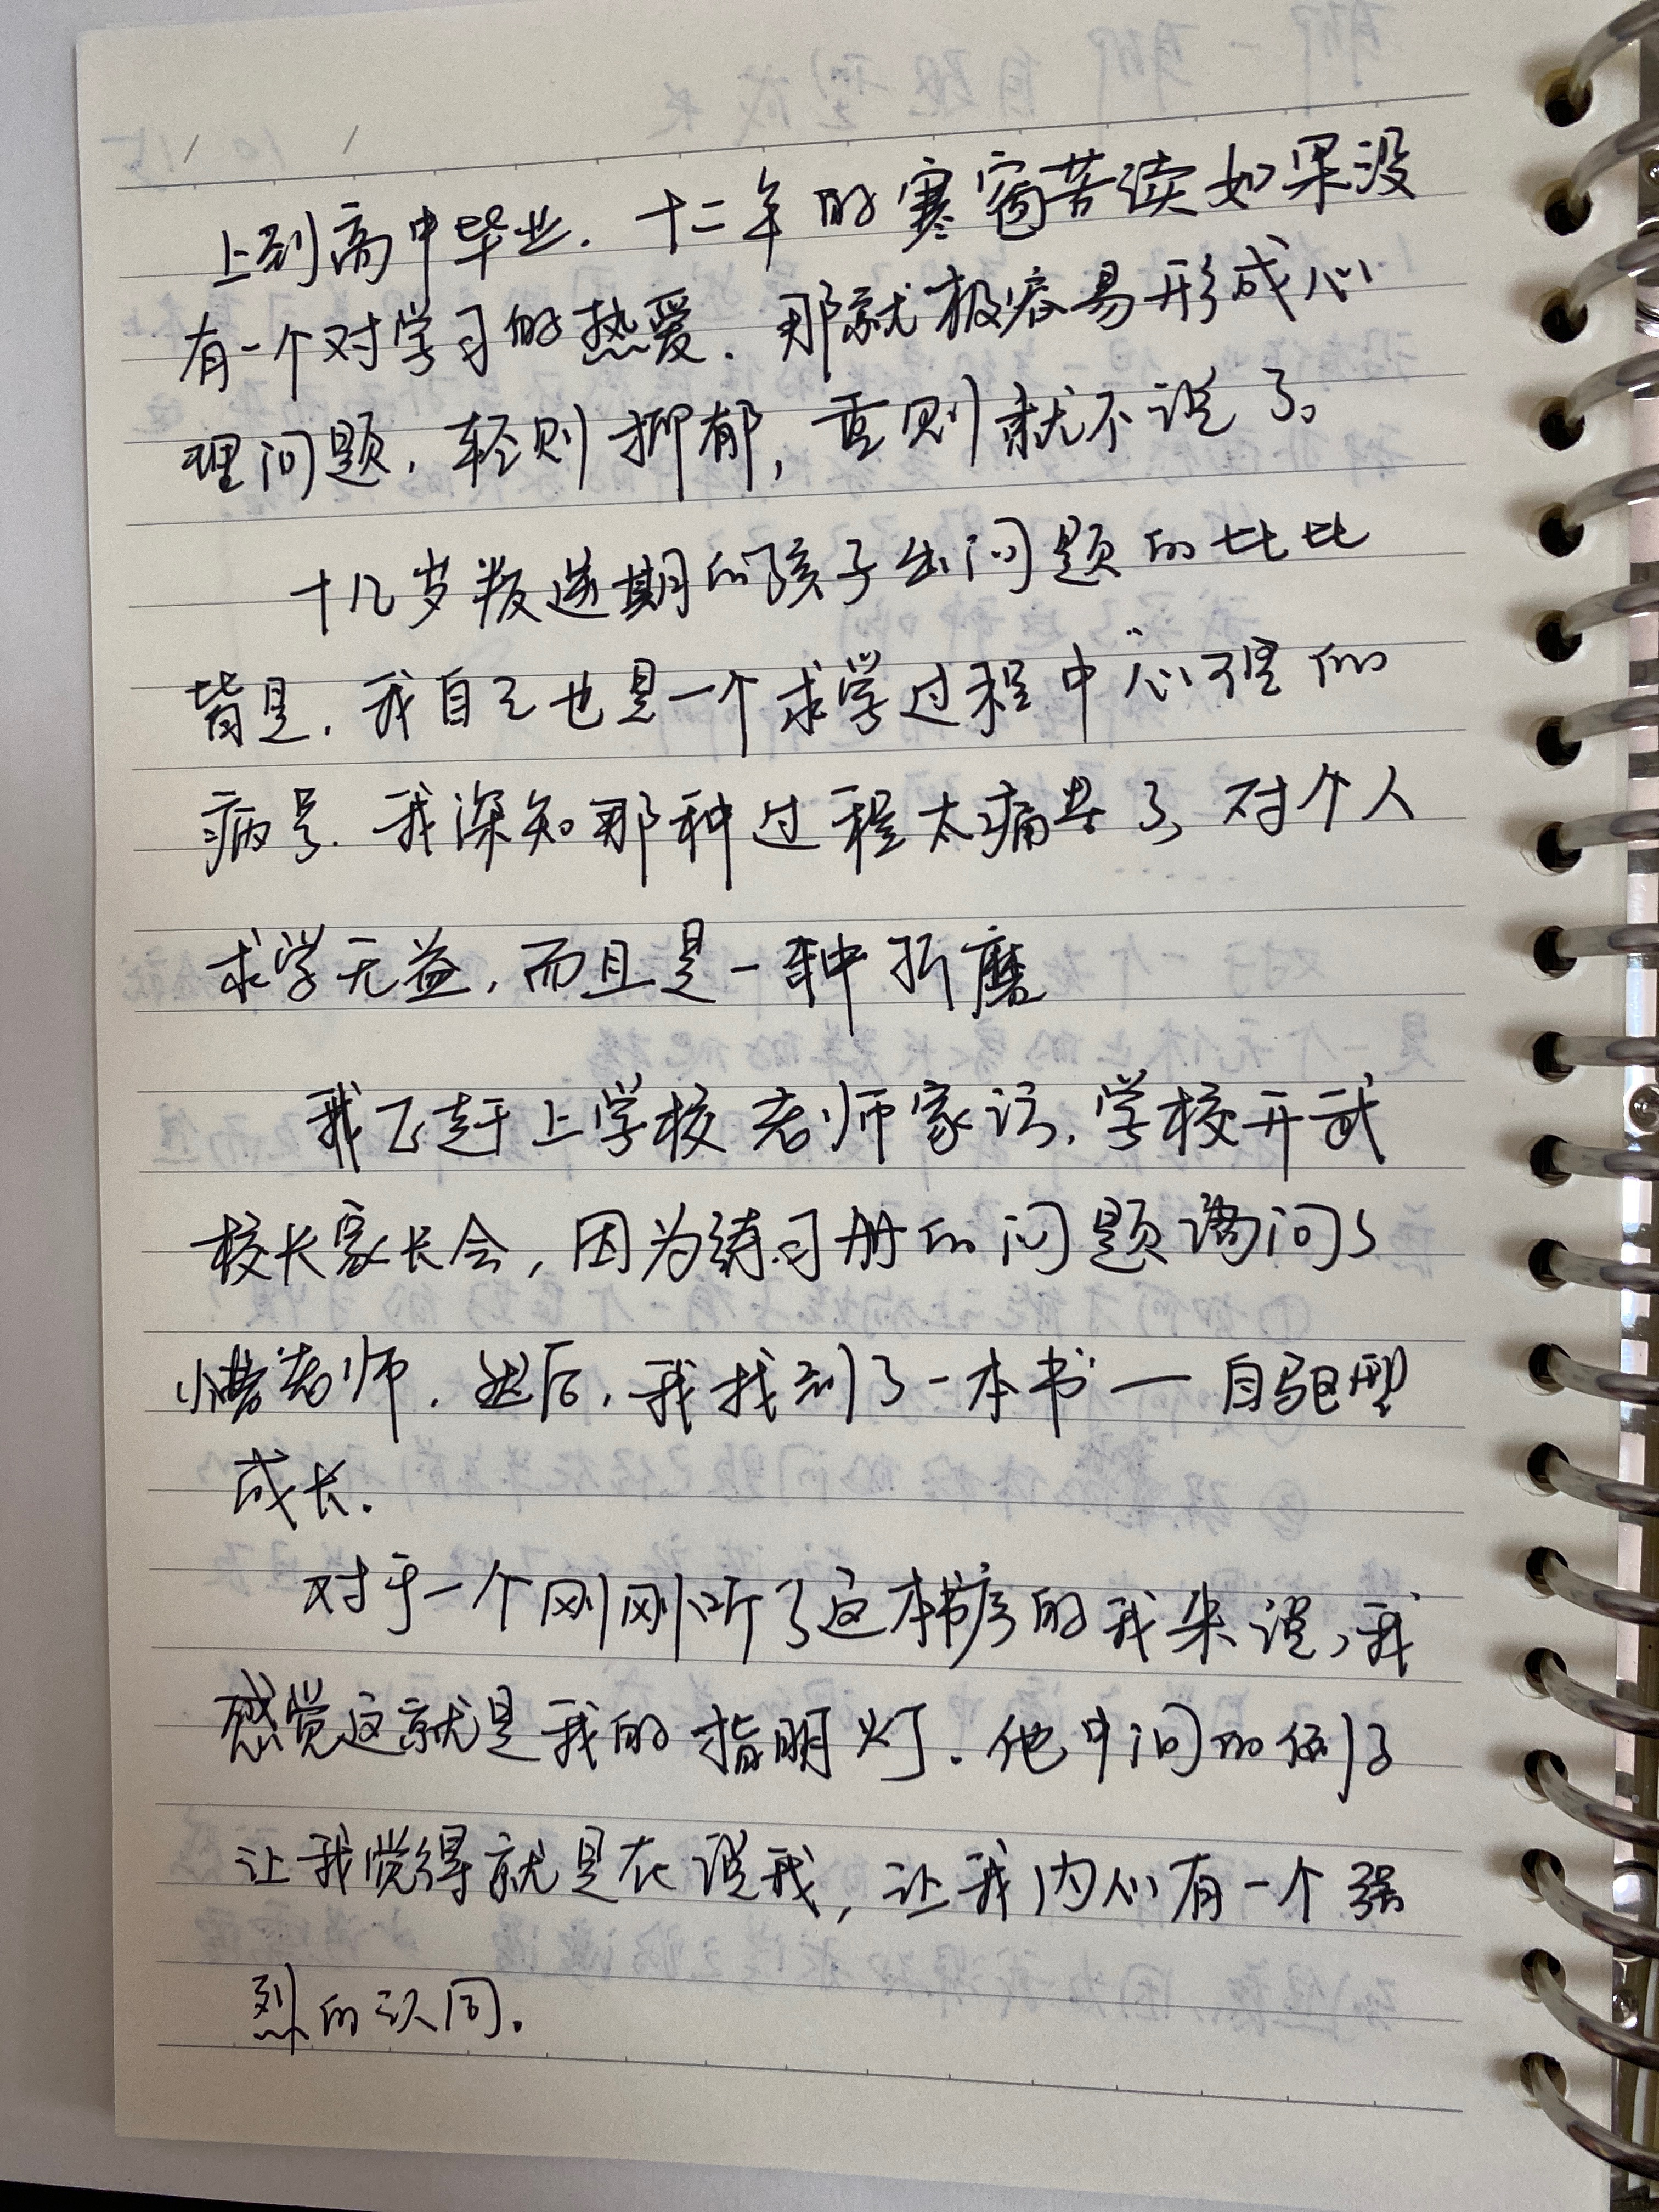 上到高中毕业.十二年的寒窗苦读如果没
有一个对学习的热爱.那就极容易形成心
理问题,轻则抑郁,重则就不说了。
十几岁叛逆期的孩子出问题的比比
皆是.我自己也是一个求学过程中心理的
病号.我深知那种过程太痛苦了,对个人
求学无益,而且是一种折磨
我飞赶上学校老师家访,学校开武
校长家长会,因为练习册的问题询问了
小曹老师.然后,我找到了一本书—自驱型
成长.
对于一个刚刚听了这本书后的我来说,我
感觉这就是我的指明灯.他中间的例子
让我觉得就是在说我,让我内心有一个强
烈的认同.